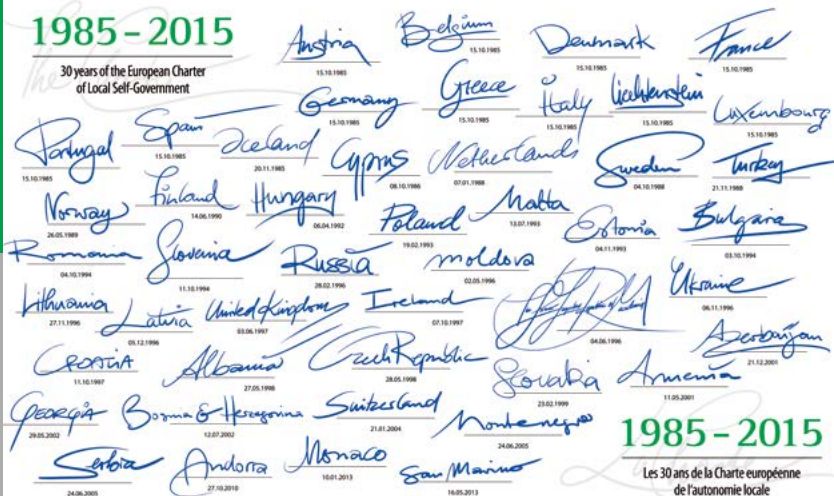 1985-2015
30 years of the European Charter
of Local Self-Government
Austria
15.10.1985
Belgium
15.10.1985
Denmark
15.10.1985
France
15.10.1985
Germany
15.10.1985
Greece
15.10.1985
Italy
15.10.1985
Liechtenstein
15.10.1985
Luxembourg
15.10.1985
Portugal
15.10.1985
Spain
15.10.1985
Iceland
20.11.1985
Cyprus
08.10.1986
Netherlands
07.01.1988
Sweden
04.10.1988
Turkey
21.11.1988
Norway
26.05.1989
Finland
14.06.1990
Hungary
06.04.1992
Poland
19.02.1993
Malta
13.07.1993
Estonia
04.11.1993
Bulgaria
03.10.1994
Romania
04.10.1994
Slovenia
11.10.1994
Russia
28.02.1996
Moldova
02.05.1996
04.06.1996
Ukraine
06.11.1996
Lithuania
27.11.1996
Latvia
05.12.1996
United Kingdom
03.06.1997
Ireland
07.10.1997
Croatia
11.10.1997
Albania
27.05.1998
Czech Republic
28.05.1998
Slovakia
23.02.1999
Armenia
11.05.2001
Azerbaijan
21.12.2001
Georgia
29.05.2002
Bosnia & Herzegovina
12.07.2002
Switzerland
21.01.2004
Montenegro
24.06.2005
Serbia
24.06.2005
Andorra
27.10.2010
Monaco
10.01.2013
San Marino
16.05.2013
1985-2015
Les 30 ans de la Charte européenne
de l'autonomie locale